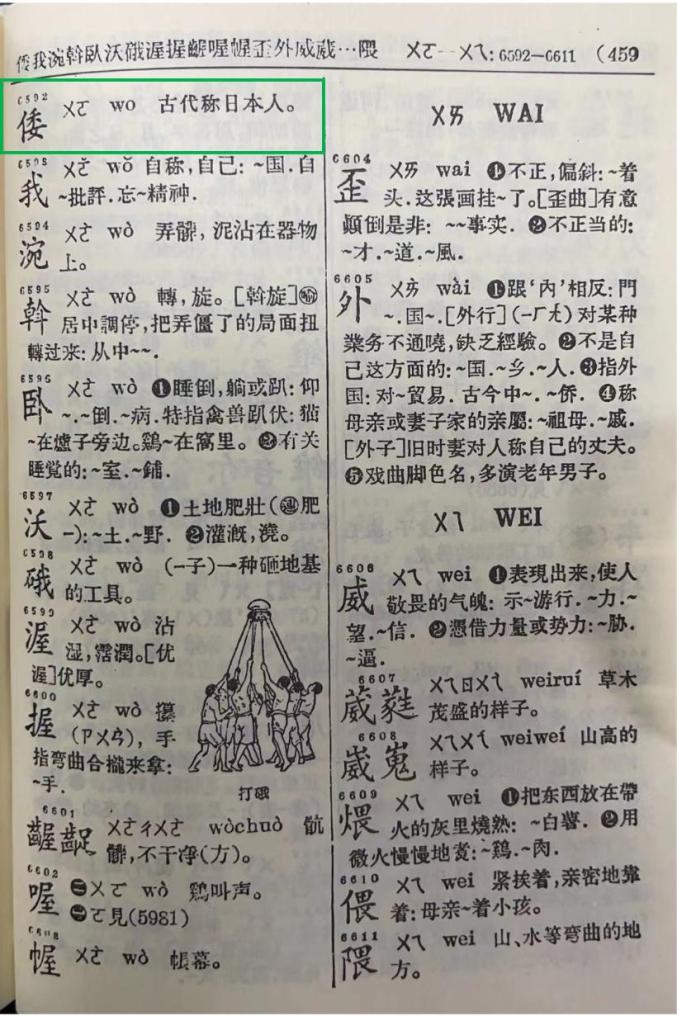 倭我涴斡臥沃硪渥握齷喔幄歪外威葳…隈 ㄨㄛ—ㄨㄟ: 6592—6611 (459
6592
倭 ㄨㄛ wo 古代称日本人。
我 ㄨㄛˇ wǒ 自称,自己: ~国.自
~批評.忘~精神.
6594
涴 ㄨㄛˋ wò 弄髒,泥沾在器物
上。
6595
斡 ㄨㄛˋ wò 轉,旋。[斡旋]
居中調停,把弄僵了的局面扭
轉过来: 从中~~.
卧 ㄨㄛˋ wò ❶睡倒,躺或趴: 仰
~.~倒.~病.特指禽兽趴伏: 猫
~在爐子旁边。鷄~在窩里。❷有关
睡覚的: ~室.~鋪.
6597
沃 ㄨㄛˋ wò ❶土地肥壯(肥
—): ~土.~野. ❷灌漑,澆。
硪 ㄨㄛˋ wò (—子)一种砸地基
的工具。
渥 ㄨㄛˋ wò 沾
湿,霑潤。[优
渥]优厚。
6600
握 ㄨㄛˋ wò 攥
(ㄗㄨㄢˋ), 手
指弯曲合攏来拿:
~手.
打硪
6601
齷齪 ㄨㄛˋㄔㄨㄛˋ wòchuò 骯
髒,不干净(方)。
6602
喔 ㄨㄛ wò 鷄叫声。
ㄛ見(5981)
幄 ㄨㄛˋ wò 帳幕。
ㄨㄞ WAI
6604
歪 ㄨㄞ wai ❶不正,偏斜: ~着
头.这張画挂~了。[歪曲]有意
顚倒是非: ~~事实. ❷不正当的:
~才.~道.~風.
6605
外 ㄨㄞˋ wài ❶跟‘內’相反: 門
~.国~.[外行](—ㄏㄤˊ)对某种
業务不通曉,缺乏經驗。❷不是自
己这方面的: ~国.~乡.~人. ❸指外
国: 对~貿易. 古今中~.~侨. ❹称
母亲或妻子家的亲屬: ~祖母.~戚.
[外子]旧时妻对人称自己的丈夫。
❺戏曲脚色名,多演老年男子。
ㄨㄟ WEI
6606
威 ㄨㄟ wei ❶表現出来,使人
敬畏的气魄: 示~游行.~力.~
望.~信. ❷憑借力量或势力: ~胁.
~逼.
6607
葳蕤 ㄨㄟㄖㄨㄟˊ weiruí 草木
茂盛的样子。
6608
崴嵬 ㄨㄟㄨㄟˊ weiweí 山高的
样子。
6609
煨 ㄨㄟ wei ❶把东西放在帶
火的灰里燒熟: ~白薯. ❷用
微火慢慢地煮: ~鷄.~肉.
6610
偎 ㄨㄟ wei 紧挨着,亲密地靠
着: 母亲~着小孩。
6611
隈 ㄨㄟ wei 山、水等弯曲的地
方。